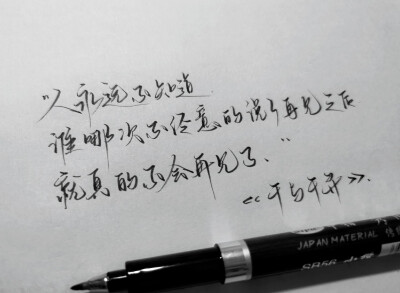 “人永远不知道
谁哪次不经意的说了再见之后
就真的不会再见了.”
《千与千寻》.
JAPAN MATERIAL
SB56